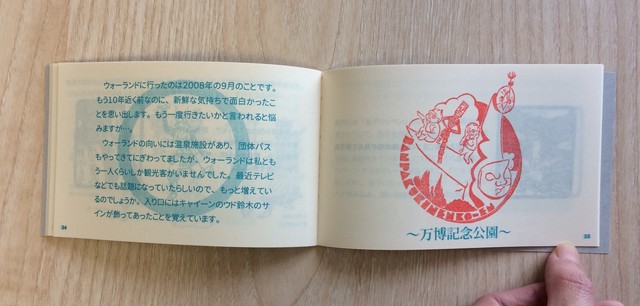 ウォーランドに行ったのは2008年の9月のことです。
もう10年近く前なのに、新鮮な気持ちで面白かったこ
とを思い出します。もう一度行きたいかと言われると悩
みますが…。
ウォーランドの向いには温泉施設があり、団体バス
もやってきてにぎわってましたが、ウォーランドは私とも
う一人くらいしか観光客がいませんでした。最近テレビ
などでも話題になっていたらしいので、もっと増えてい
るのでしょうか。入り口にはキャイーンのウド鈴木のサ
インが飾ってあったことを覚えています。
34
BANPAKUKINENKO-EN
〜万博記念公園〜
35